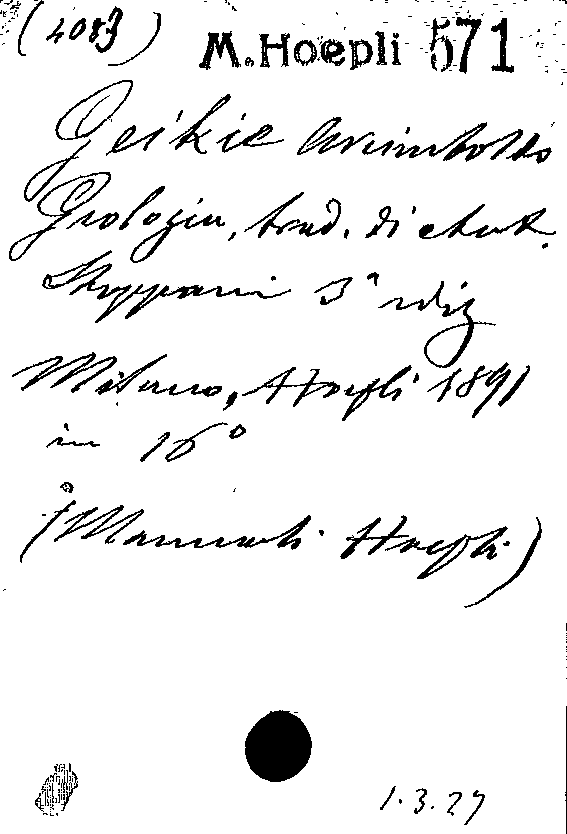 (4083) M. Hoepli 571
Geikie Arcimboldo
Geologia, trad. di Ant.
Stoppani 3ª ediz
Milano, Hoepli 1891
in 16°
(Manuali Hoepli)
1.3.27